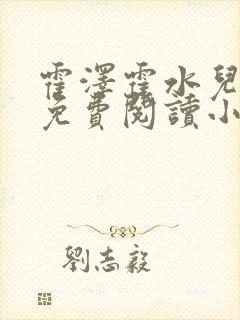 霍澤霍水兒
免費閱讀小
劉志毅